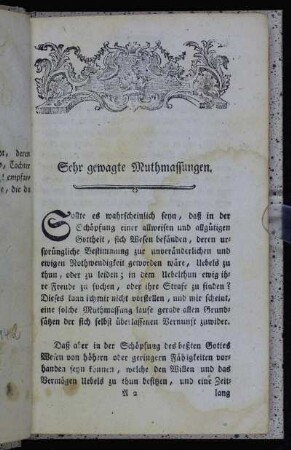 Sehr gewagte Muthmassungen.
Sollte es wahrscheinlich seyn, daß in der
Schöpfung einer allweisen und allgütigen
Gottheit, sich Wesen befänden, deren ur-
sprüngliche Bestimmung zur unveränderlichen und
ewigen Nothwendigkeit geworden wäre, Uebels zu
thun, oder zu leiden; in dem Uebelthun ewig ih-
re Freude zu suchen, oder ihre Strafe zu finden?
Dieses kann ich mir nicht vorstellen, und mir scheint,
eine solche Muthmassung laufe gerade allen Grund-
sätzen der sich selbst überlassenen Vernunft zuwider.
Daß aber in der Schöpfung des beßten Gottes
Wesen von höhern oder geringern Fähigkeiten vor-
handen seyn können, welche den Willen und das
Vermögen Uebels zu thun besitzen, und eine Zeit
A 2 lang
denn
Töchter
die da